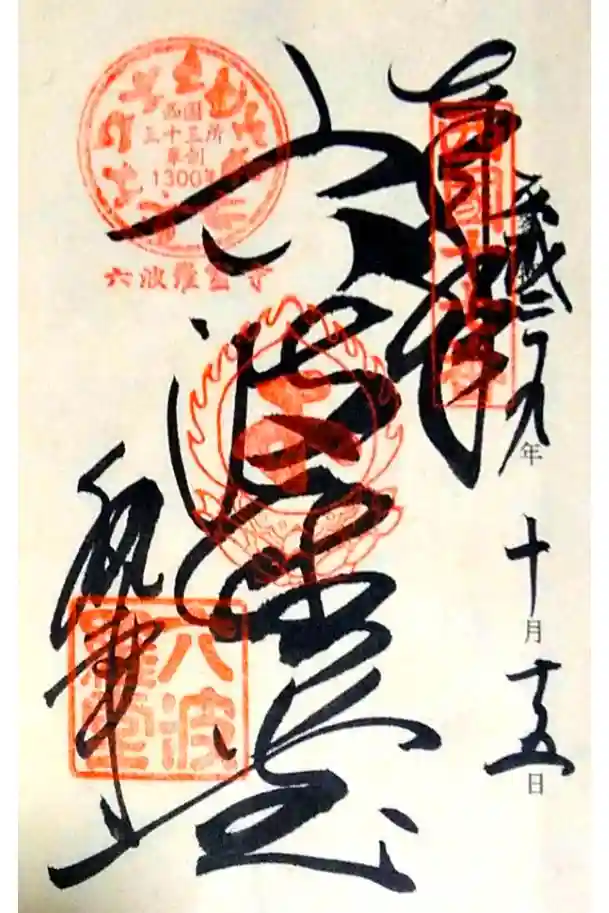 奉拝
西國十七番
平成二九年
十月
十五日
六波羅堂
西国
三十三所
草創
1300年
六波羅蜜寺
六波羅堂